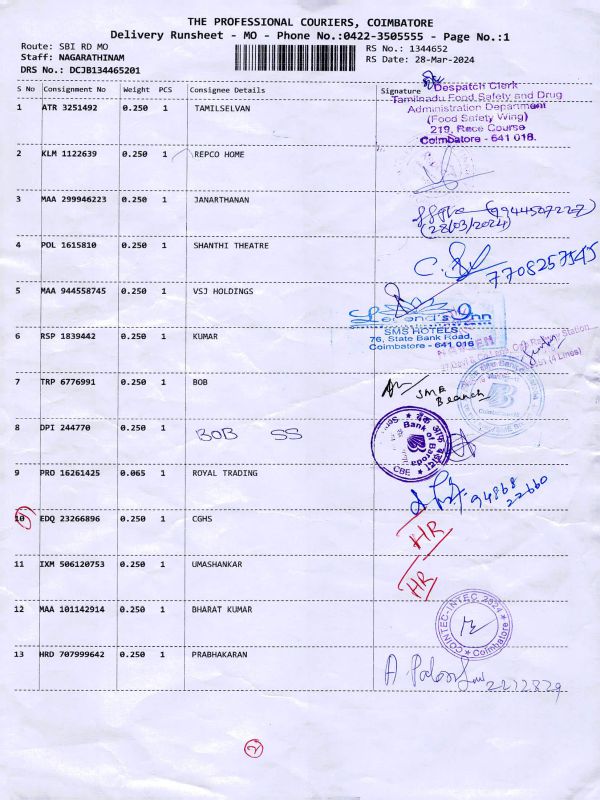 THE PROFESSIONAL COURIERS, COIMBATORE
Delivery Runsheet - MO - Phone No.:0422-3505555 - Page No.:1
Route: SBI RD MO
Staff: NAGARATHINAM
DRS No.: DCJB134465201
RS No.: 1344652
RS Date: 28-Mar-2024
S No Consignment No Weight PCS Consignee Details Signature
1 ATR 3251492 0.250 1 TAMILSELVAN
Despatch Clerk
Tamilnadu Food Safety and Drug
Administration Department
(Food Safety Wing)
219, Race Course
Coimbatore - 641 018.
2 KLM 1122639 0.250 1 REPCO HOME
3 MAA 299946223 0.250 1 JANARTHANAN
(9944507227)
(28/03/2024)
4 POL 1615810 0.250 1 SHANTHI THEATRE
7708257545
5 MAA 944558745 0.250 1 VSJ HOLDINGS
Legend's Inn
SMS HOTELS
76, State Bank Road,
Coimbatore - 641 018
6 RSP 1839442 0.250 1 KUMAR
Station
(4 Lines)
7 TRP 6776991 0.250 1 BOB
SME
Branch
8 DPI 244770 BOB SS
Bank of Baroda
CBE
9 PRO 16261425 0.065 1 ROYAL TRADING
94868
22660
10 EDQ 23266896 0.250 1 CGHS
HR
11 IXM 506120753 0.250 1 UMASHANKAR
HR
12 MAA 101142914 0.250 1 BHARAT KUMAR
COINTEC-INTEC 2024
Coimbatore
13 HRD 707999642 0.250 1 PRABHAKARAN
2